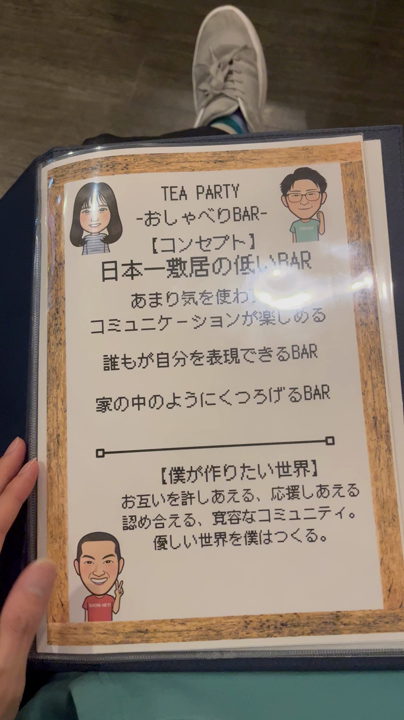 TEA PARTY
-おしゃべりBAR-
【コンセプト】
日本一敷居の低いBAR
あまり気を使わ
コミュニケーションが楽しめる
誰もが自分を表現できるBAR
家の中のようにくつろげるBAR
【僕が作りたい世界】
お互いを許しあえる、応援しあえる
認め合える、寛容なコミュニティ。
優しい世界を僕はつくる。